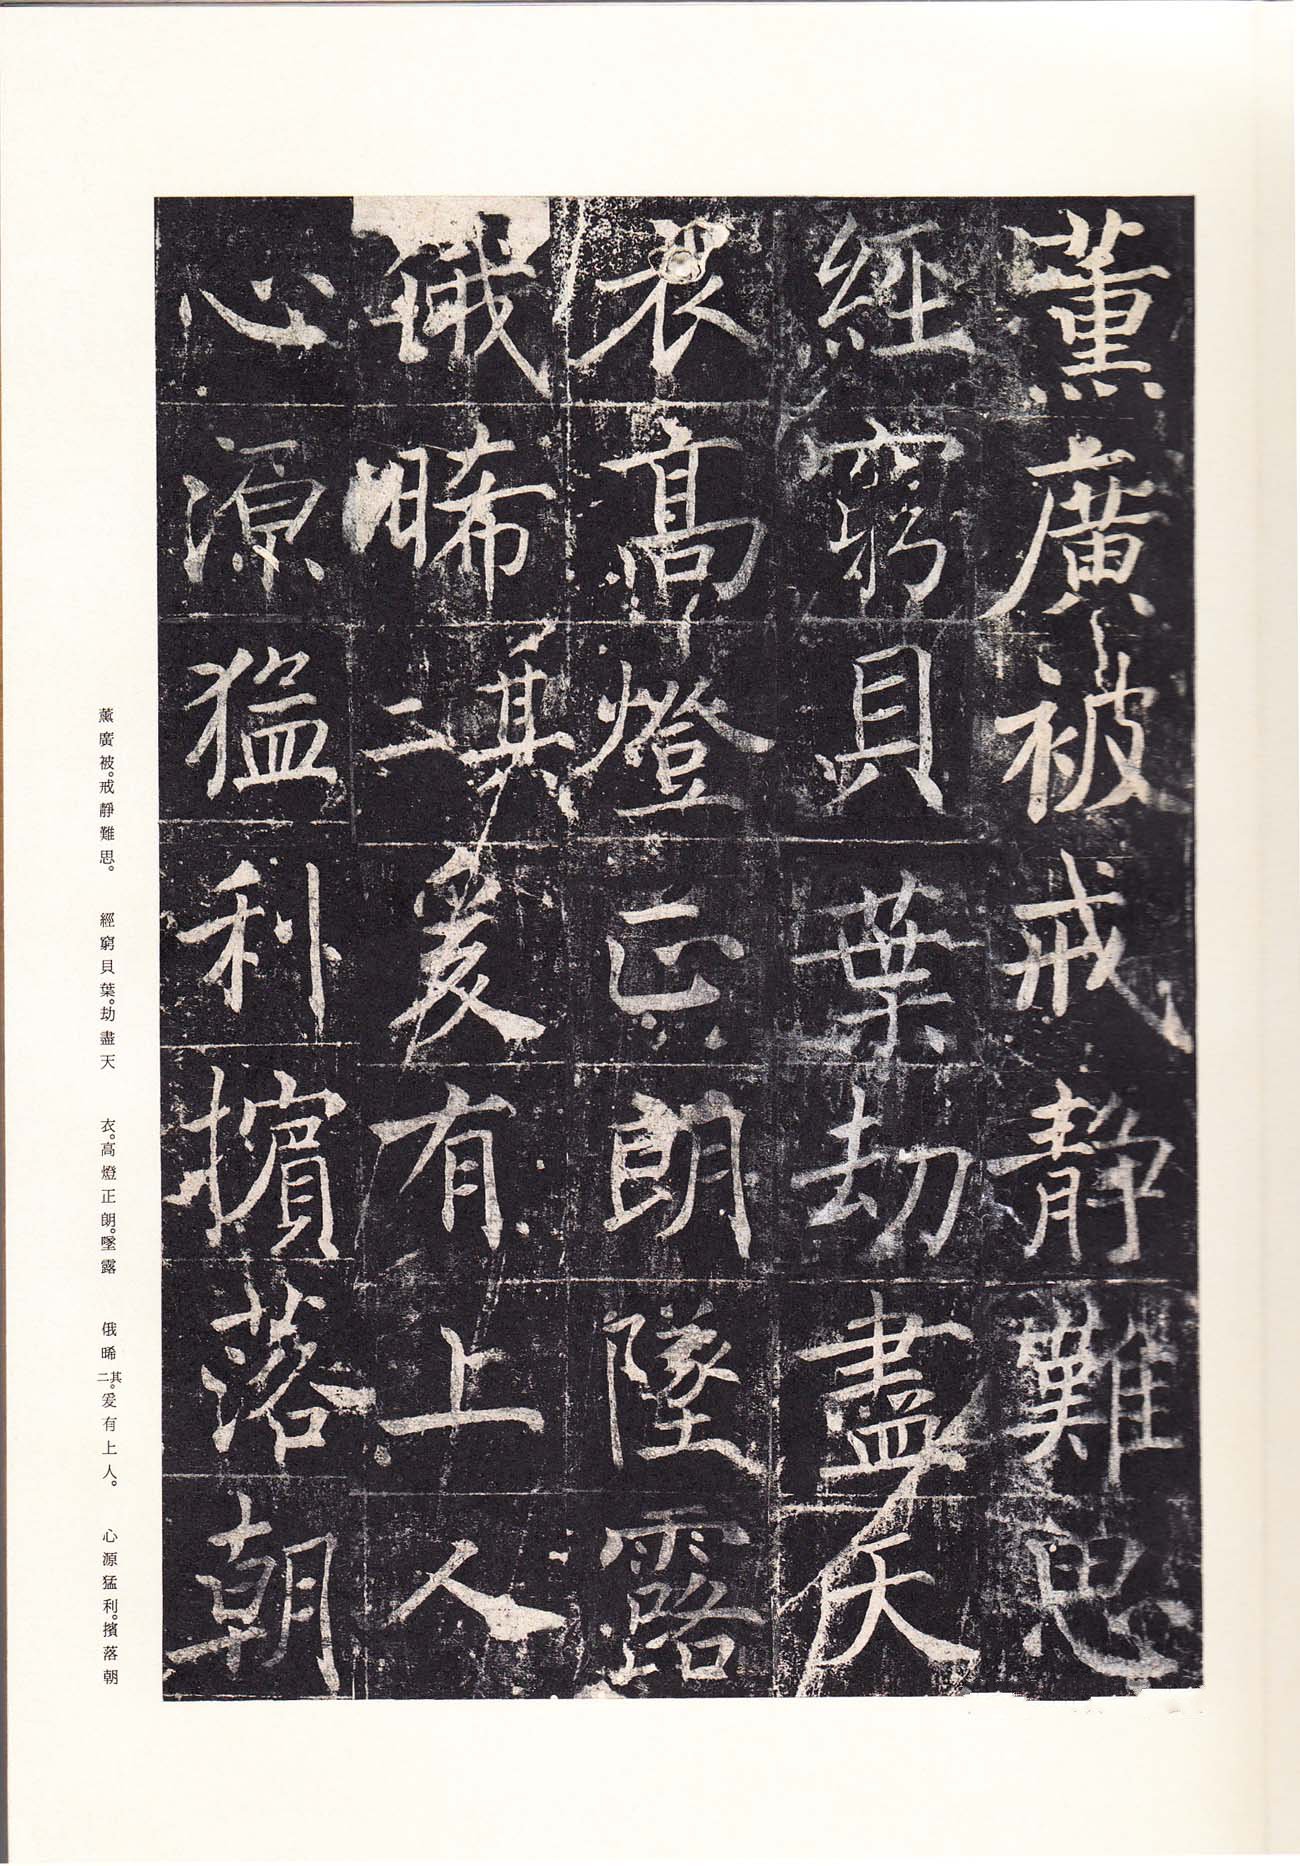 薰廣被戒靜難思
經窮貝葉劫盡天
衣高燈正朗墜露
俄晞其二爰有上人
心源猛利擯落朝
薰廣被。戒靜難思。 經窮貝葉。劫盡天 衣。高燈正朗。墜露 俄晞其二。爰有上人。 心源猛利。擯落朝